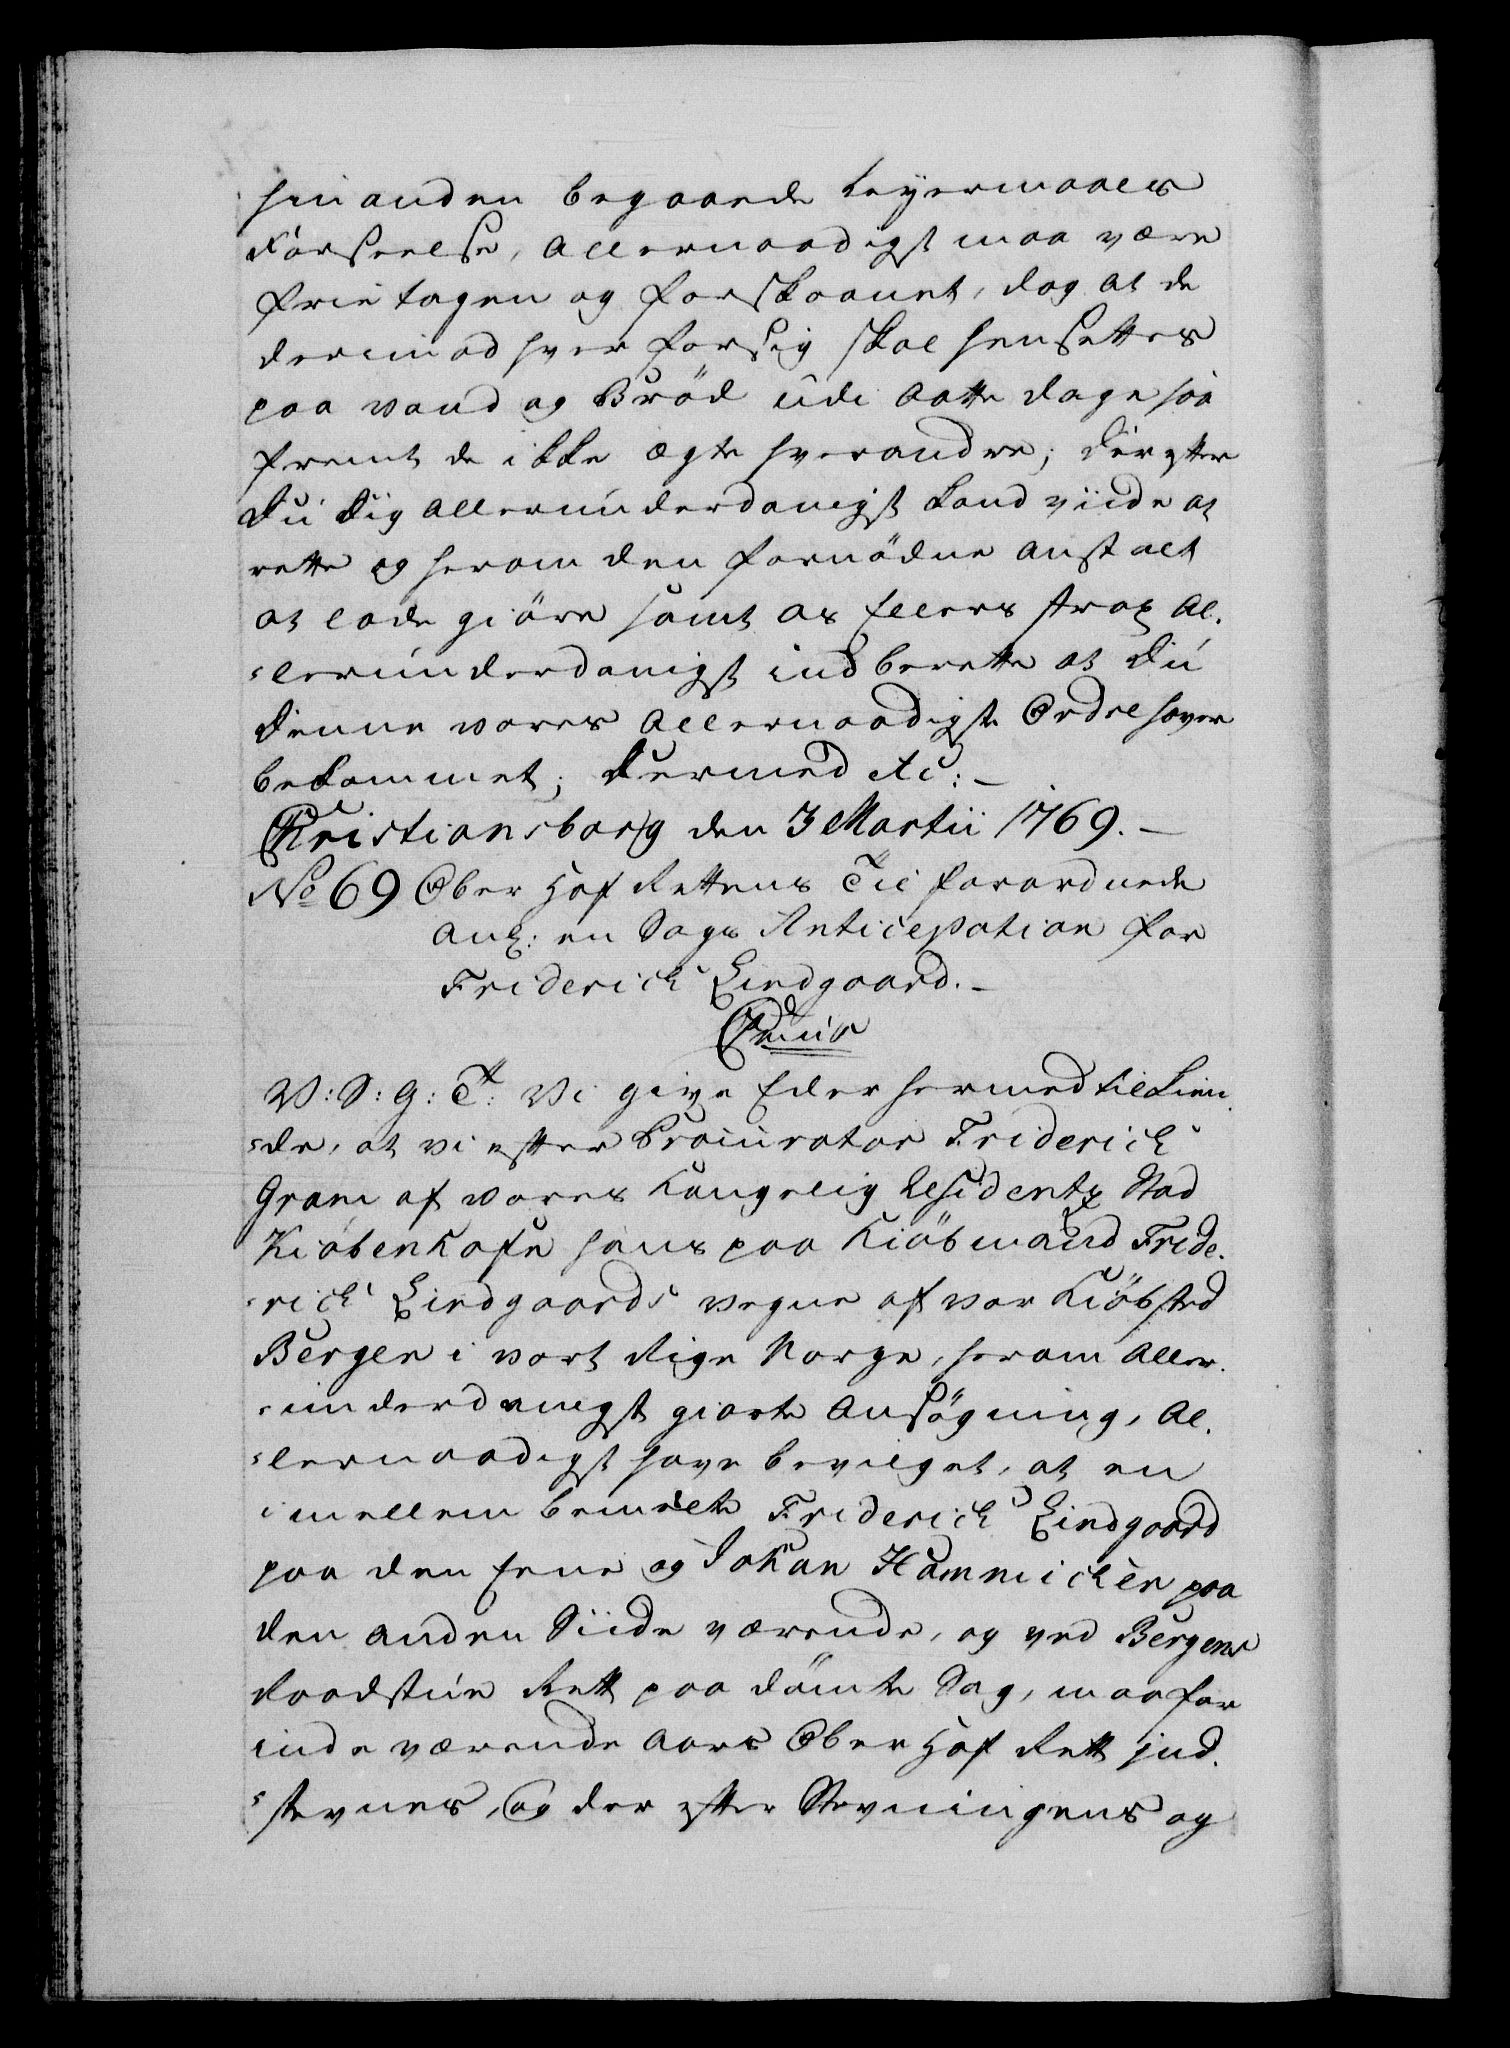 hinanden begaaede Leyermaals
Forseelse, Allernaadigst maa være
frie tagen og forskaanet, dog at de
derimod hver for sig skal hensettes
paa vand og Bröd udi aatte dage saa
fremt de ikke ægte hverandre; Derefter
Du dig allerunderdanigst kand viide at
rette og herom den fornödne anstalt
at lade giöre samt os Ellers strax Al-
lerunderdanigst indberette at du
denne vores allernaadigste Ordre haver
bekommet; Dermed etc:
Christiansborg den 3 Martii 1769.
No 69 Ober Hof Rettens Til forordnede
Anl: en Sags Anticipation for
Friderich Lindgaard.
C7mus
V: S: G: T: Vi give Eder hermed tilkien-
de, at vi efter Procurator Friderich
Gram af vores Kongelig Residentz Stad
Kiøbenhafn hans paa Kiöbmand Fride-
rich Lindgaards vegne af vor Kiöbsted
Bergen i vort Rige Norge, herom Aller-
underdanigst giorte Ansögning, Al-
lernaadigst have bevilget, at en
imellem bemelte Friderich Lindgaard
paa den Eene og Johan Hammicken paa
den anden Siide værende, og ved Bergens
Raadstue Rett paa dömte Sag, maa for
inde værende Aars Ober Hof Rett ind-
stevnes, og der efter Stevningens og